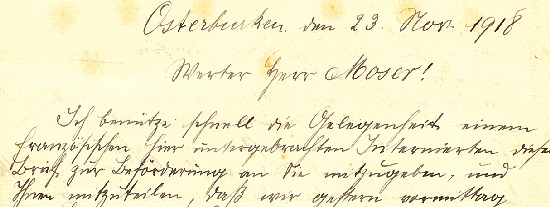 Osterburken. den 23. Nov. 1918
Werter Herr Moser!
Ich benütze schnell die Gelegenheit einem
französischen hier untergebrachten Internierten diesen
Brief zur Beförderung an Sie mitzugeben, und
Ihnen mitzuteilen, daß wir gestern vormittag